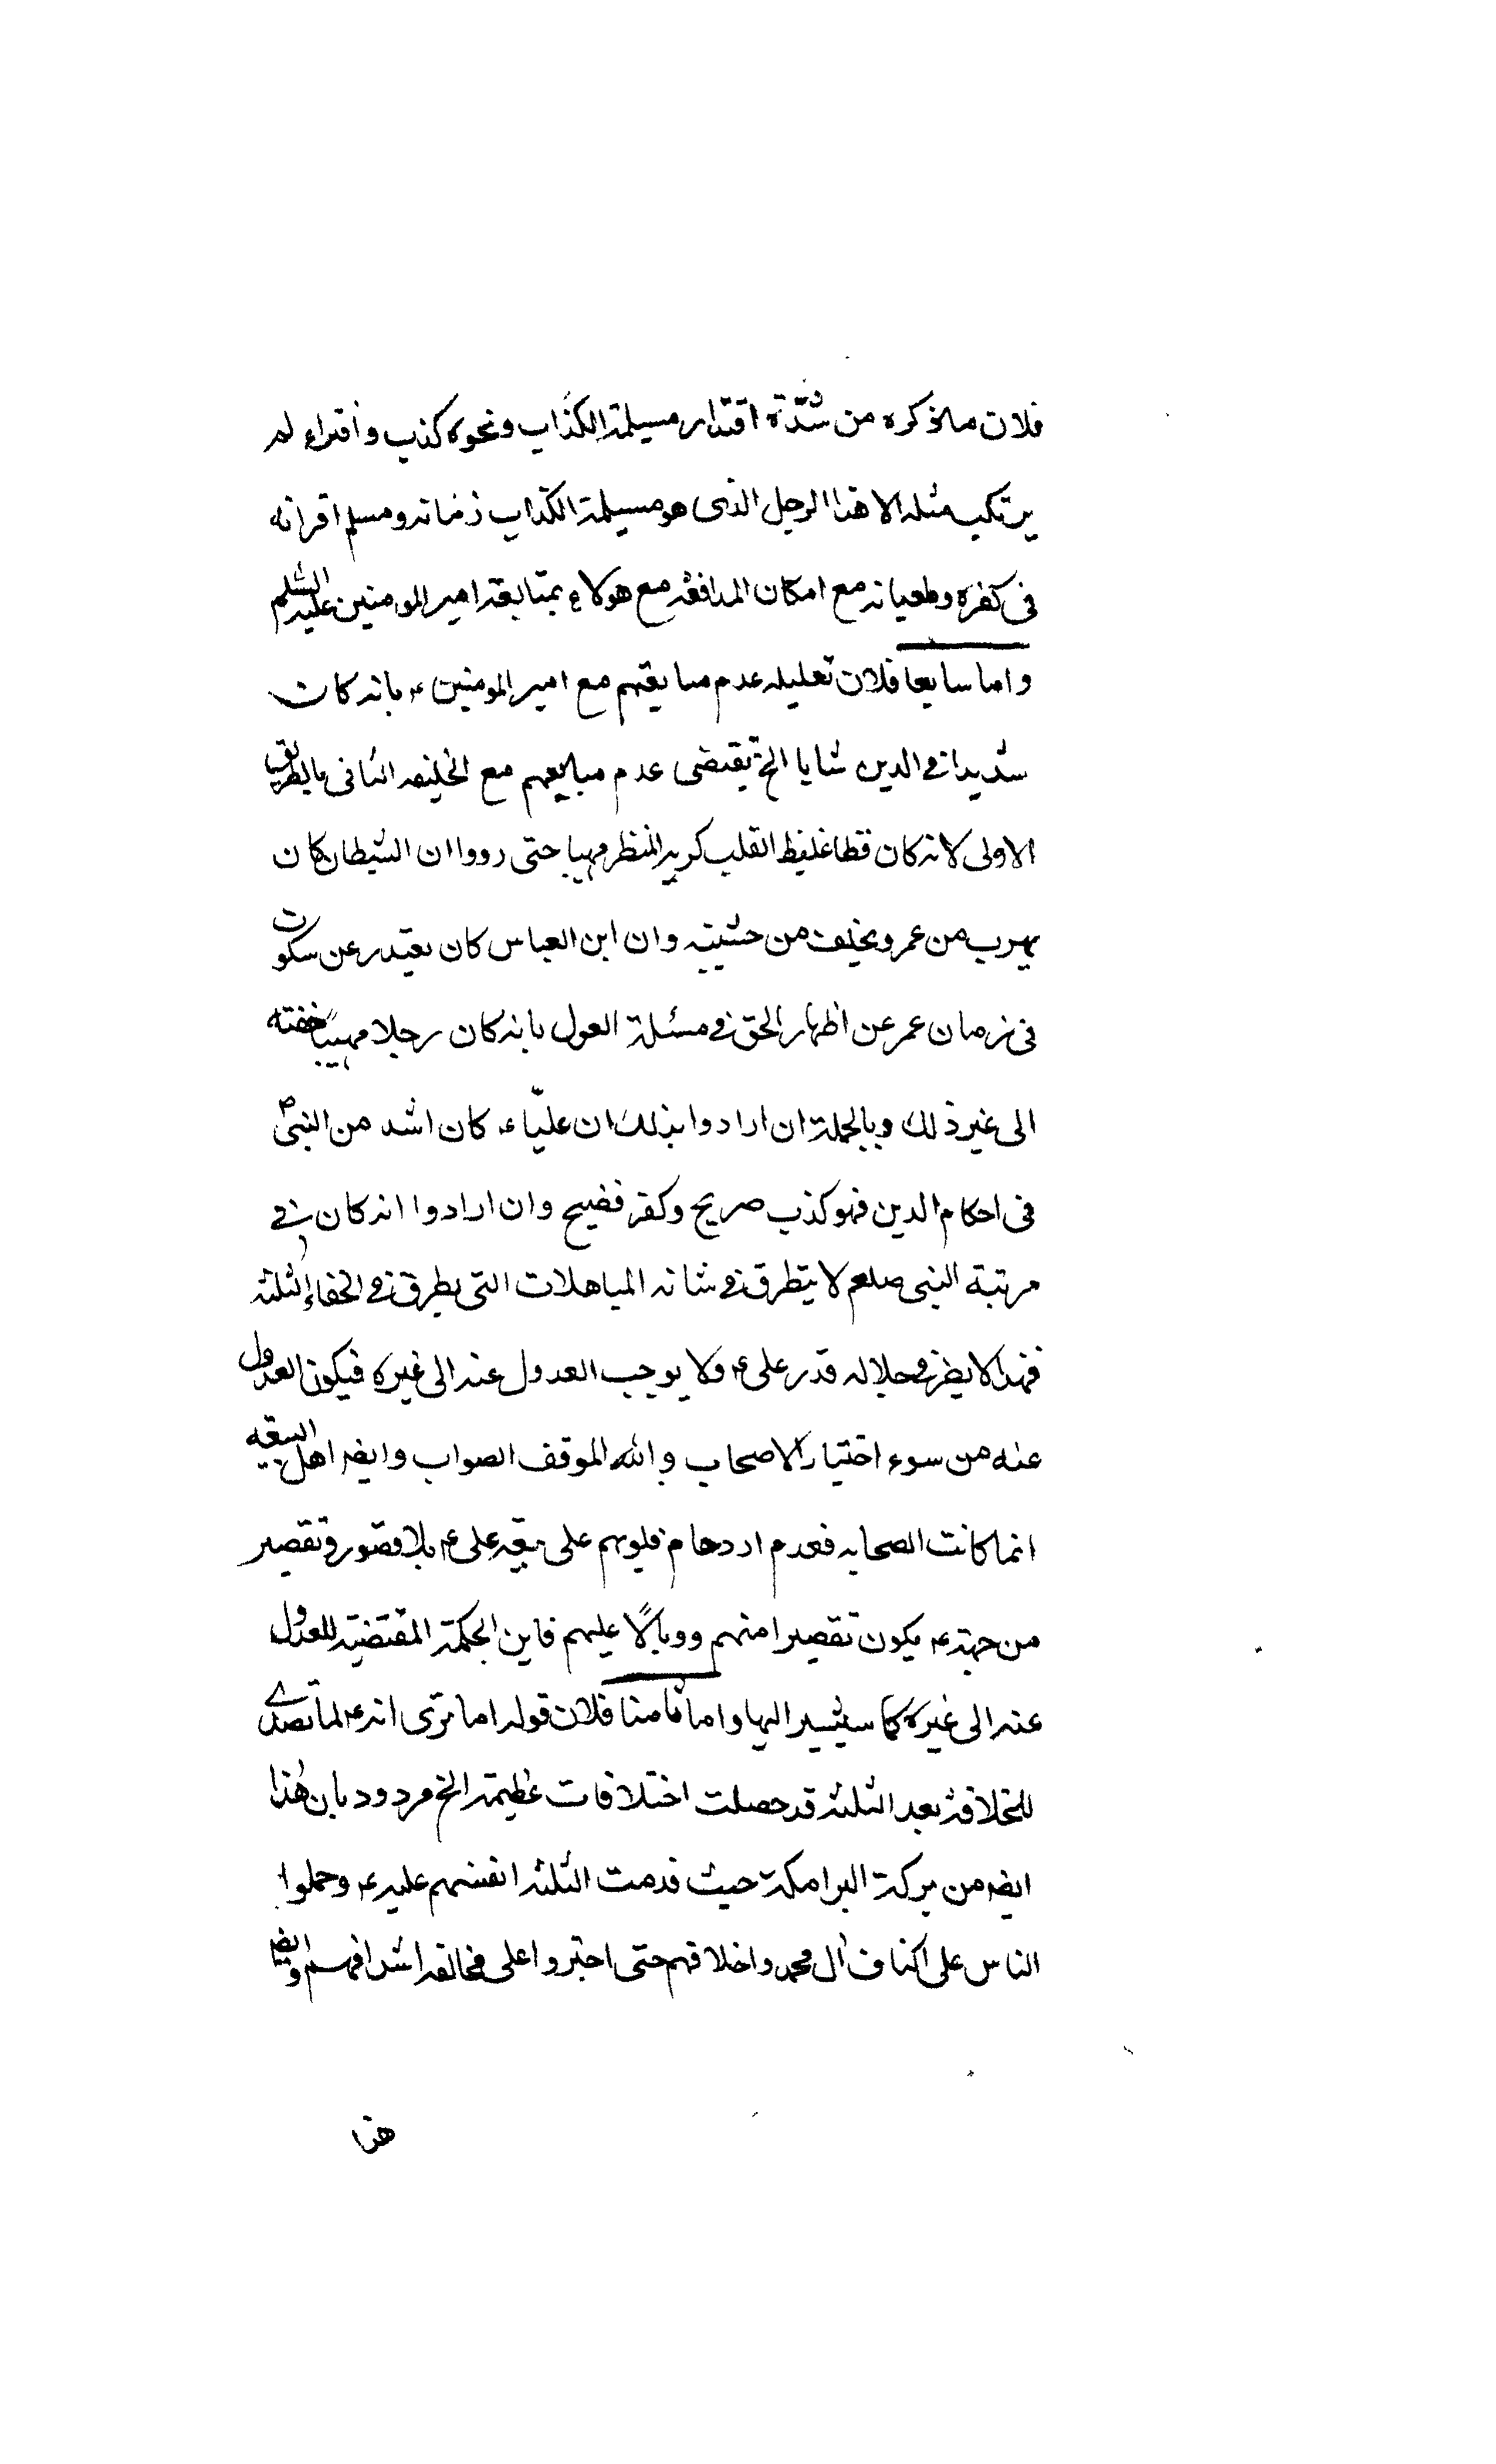 فلان ما ذكره من شدّة اقتدار مسيلمة الكذّاب ونحوه كذب وافتراء لم
يرتكب مثله الا هذا الرجل الذى هو مسيلمة الكذاب زمانه ومسلم اقرانه
فى كفره وطغيانه مع امكان المدافعة مع هولاء بمتابعة امير المومنين عليه السلم
واما سابعا فلان تعليله عدم مبايعتهم مع امير المومنين ع بانه كان
شديدا فى الدين شايا الخ يقتضى عدم مبايعهم مع الخليفه الثانى بالطريق
الاولى لانه كان فظا غليظ القلب كريه المنظر مهيبا حتى رووا ان الشيطان كان
يهرب من عمر ويخيف من خشيته وان ابن العباس كان يعتذر عن سكوت
فى زمان عمر عن اظهار الحق فى مسئلة العول بانه كان رجلا مهيبا خفته
الى غير ذلك وبالجملة ان ارادوا بذلك ان عليّا ع كان اشد من النبىّ ص
فى احكام الدين فهو كذب صريح وكفر فضيح وان ارادوا انه كان فى
مرتبة النبى صلعم لا يتطرق فى شانه المساهلات التى يطرق فى الخفاء الثلثه
فهذا لا يضر فى جلاله قدر على ع ولا يوجب العدول عنه الى غيره فيكون العدول
عنه من سوء اختيار الاصحاب والله الموفق الصواب وايضا اهل البيعه
انما كانت الصحابه فعدم ازدحام قلوبهم على بيعه على ع بلا قصور وتقصير
من جهته ع يكون تقصيرا منهم ووبالًا عليهم فاين الحكمة المقتضية للعدول
عنه الى غيره كما سيشير اليها واما ثامنا فلان قوله اما ترى انه ع لما تصدى
للخلافة بعد الثلثه قد حصلت اختلافات عظيمة الخ مردود بان هذا
ايضا من بركة البرامكة حيث قدمت الثلثه انفسهم عليه ع وحملوا
الناس على اكتاف آل محمد واخلافهم حتى اجتروا على مخالفه اشرافهم وايضا
هذا